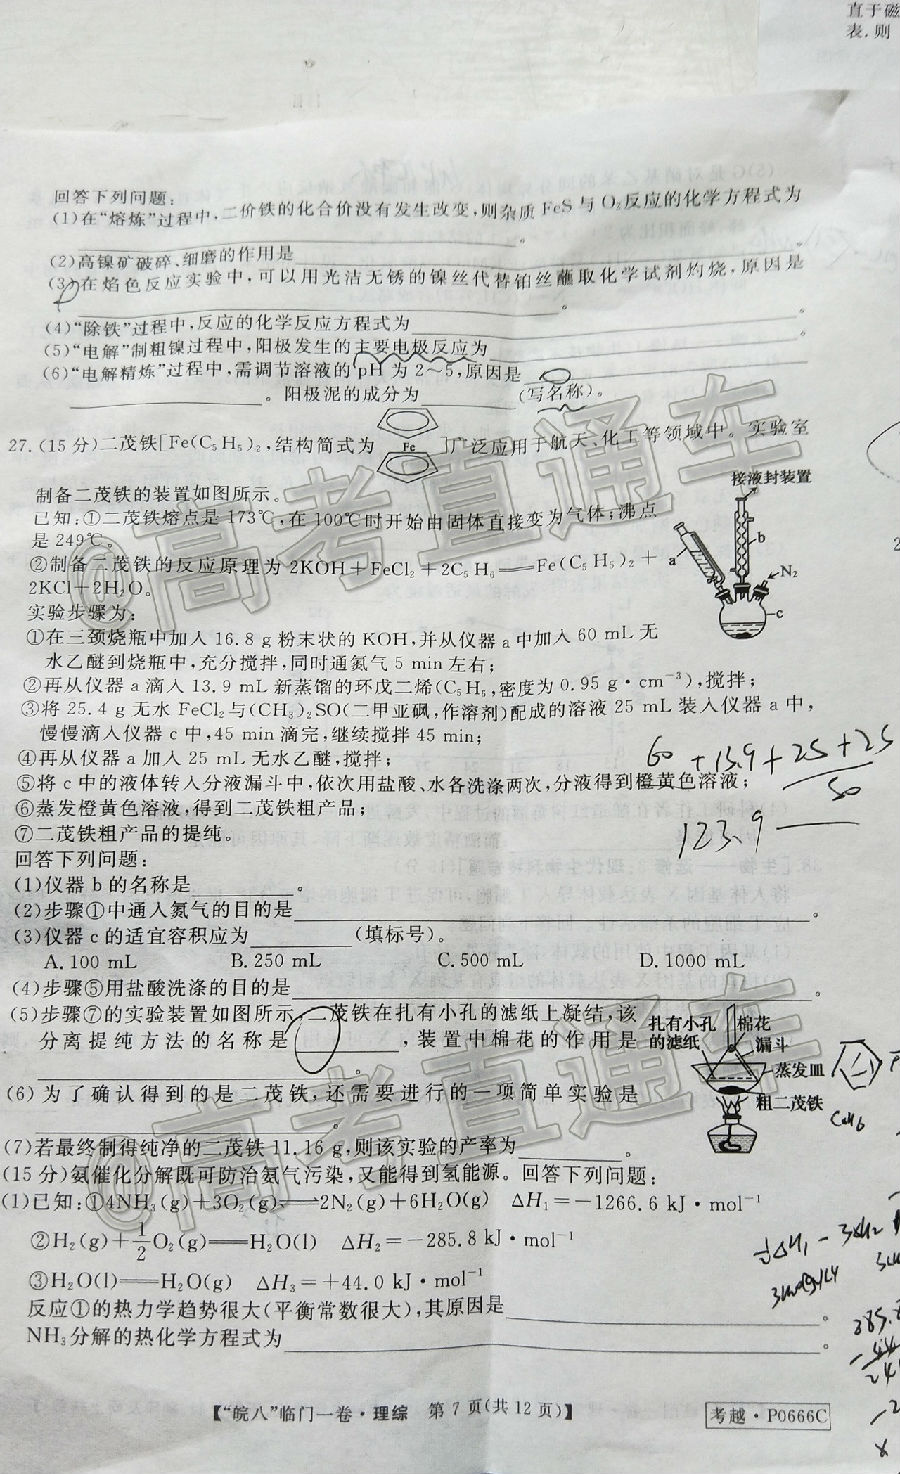 直于磁
表,则
回答下列问题:
(1)在“熔炼”过程中,二价铁的化合价没有发生改变,则杂质 FeS 与 O₂反应的化学方程式为
。
(2)高镍矿破碎、细磨的作用是 。
(3)在焰色反应实验中,可以用光洁无锈的镍丝代替铂丝蘸取化学试剂灼烧,原因是
。
(4)“除铁”过程中,反应的化学反应方程式为 。
(5)“电解”制粗镍过程中,阳极发生的主要电极反应为 。
(6)“电解精炼”过程中,需调节溶液的 pH 为 2~5,原因是
。阳极泥的成分为 (写名称)。
27.(15 分)二茂铁[Fe(C₅H₅)₂,结构简式为 Fe ]广泛应用于航天、化工等领域中。实验室
制备二茂铁的装置如图所示。
已知:①二茂铁熔点是 173℃,在 100℃时开始由固体直接变为气体;沸点
是 249℃。
②制备二茂铁的反应原理为 2KOH+FeCl₂+2C₅H₆══Fe(C₅H₅)₂+
2KCl+2H₂O。
接液封装置
a
b
N₂
c
实验步骤为:
①在三颈烧瓶中加入 16.8 g 粉末状的 KOH,并从仪器 a 中加入 60 mL 无
水乙醚到烧瓶中,充分搅拌,同时通氮气 5 min 左右;
②再从仪器 a 滴入 13.9 mL 新蒸馏的环戊二烯(C₅H₆,密度为 0.95 g·cm⁻³),搅拌;
③将 25.4 g 无水 FeCl₂与(CH₃)₂SO(二甲亚砜,作溶剂)配成的溶液 25 mL 装入仪器 a 中,
慢慢滴入仪器 c 中,45 min 滴完,继续搅拌 45 min;
④再从仪器 a 加入 25 mL 无水乙醚,搅拌;
⑤将 c 中的液体转入分液漏斗中,依次用盐酸、水各洗涤两次,分液得到橙黄色溶液;
60 +13.9+25+25
50
⑥蒸发橙黄色溶液,得到二茂铁粗产品;
123.9
⑦二茂铁粗产品的提纯。
回答下列问题:
(1)仪器 b 的名称是 。
(2)步骤①中通入氮气的目的是 。
(3)仪器 c 的适宜容积应为 (填标号)。
A. 100 mL B. 250 mL C. 500 mL D. 1000 mL
(4)步骤⑤用盐酸洗涤的目的是 。
(5)步骤⑦的实验装置如图所示,二茂铁在扎有小孔的滤纸上凝结,该
分离提纯方法的名称是 ,装置中棉花的作用是
。
扎有小孔
的滤纸
棉花
漏斗
蒸发皿
粗二茂铁
(6)为了确认得到的是二茂铁,还需要进行的一项简单实验是
。
C₆H₆
(7)若最终制得纯净的二茂铁 11.16 g,则该实验的产率为 。
(15 分)氨催化分解既可防治氨气污染,又能得到氢能源。回答下列问题:
(1)已知:①4NH₃(g)+3O₂(g)══2N₂(g)+6H₂O(g) ΔH₁=−1266.6 kJ·mol⁻¹
②H₂(g)+1/2O₂(g)══H₂O(l) ΔH₂=−285.8 kJ·mol⁻¹
③H₂O(l)══H₂O(g) ΔH₃=+44.0 kJ·mol⁻¹
反应①的热力学趋势很大(平衡常数很大),其原因是 。
NH₃分解的热化学方程式为 。
【“皖八”临门一卷·理综 第 7 页(共 12 页)】
考越·P0666C
@高考直通车
@高考直通车